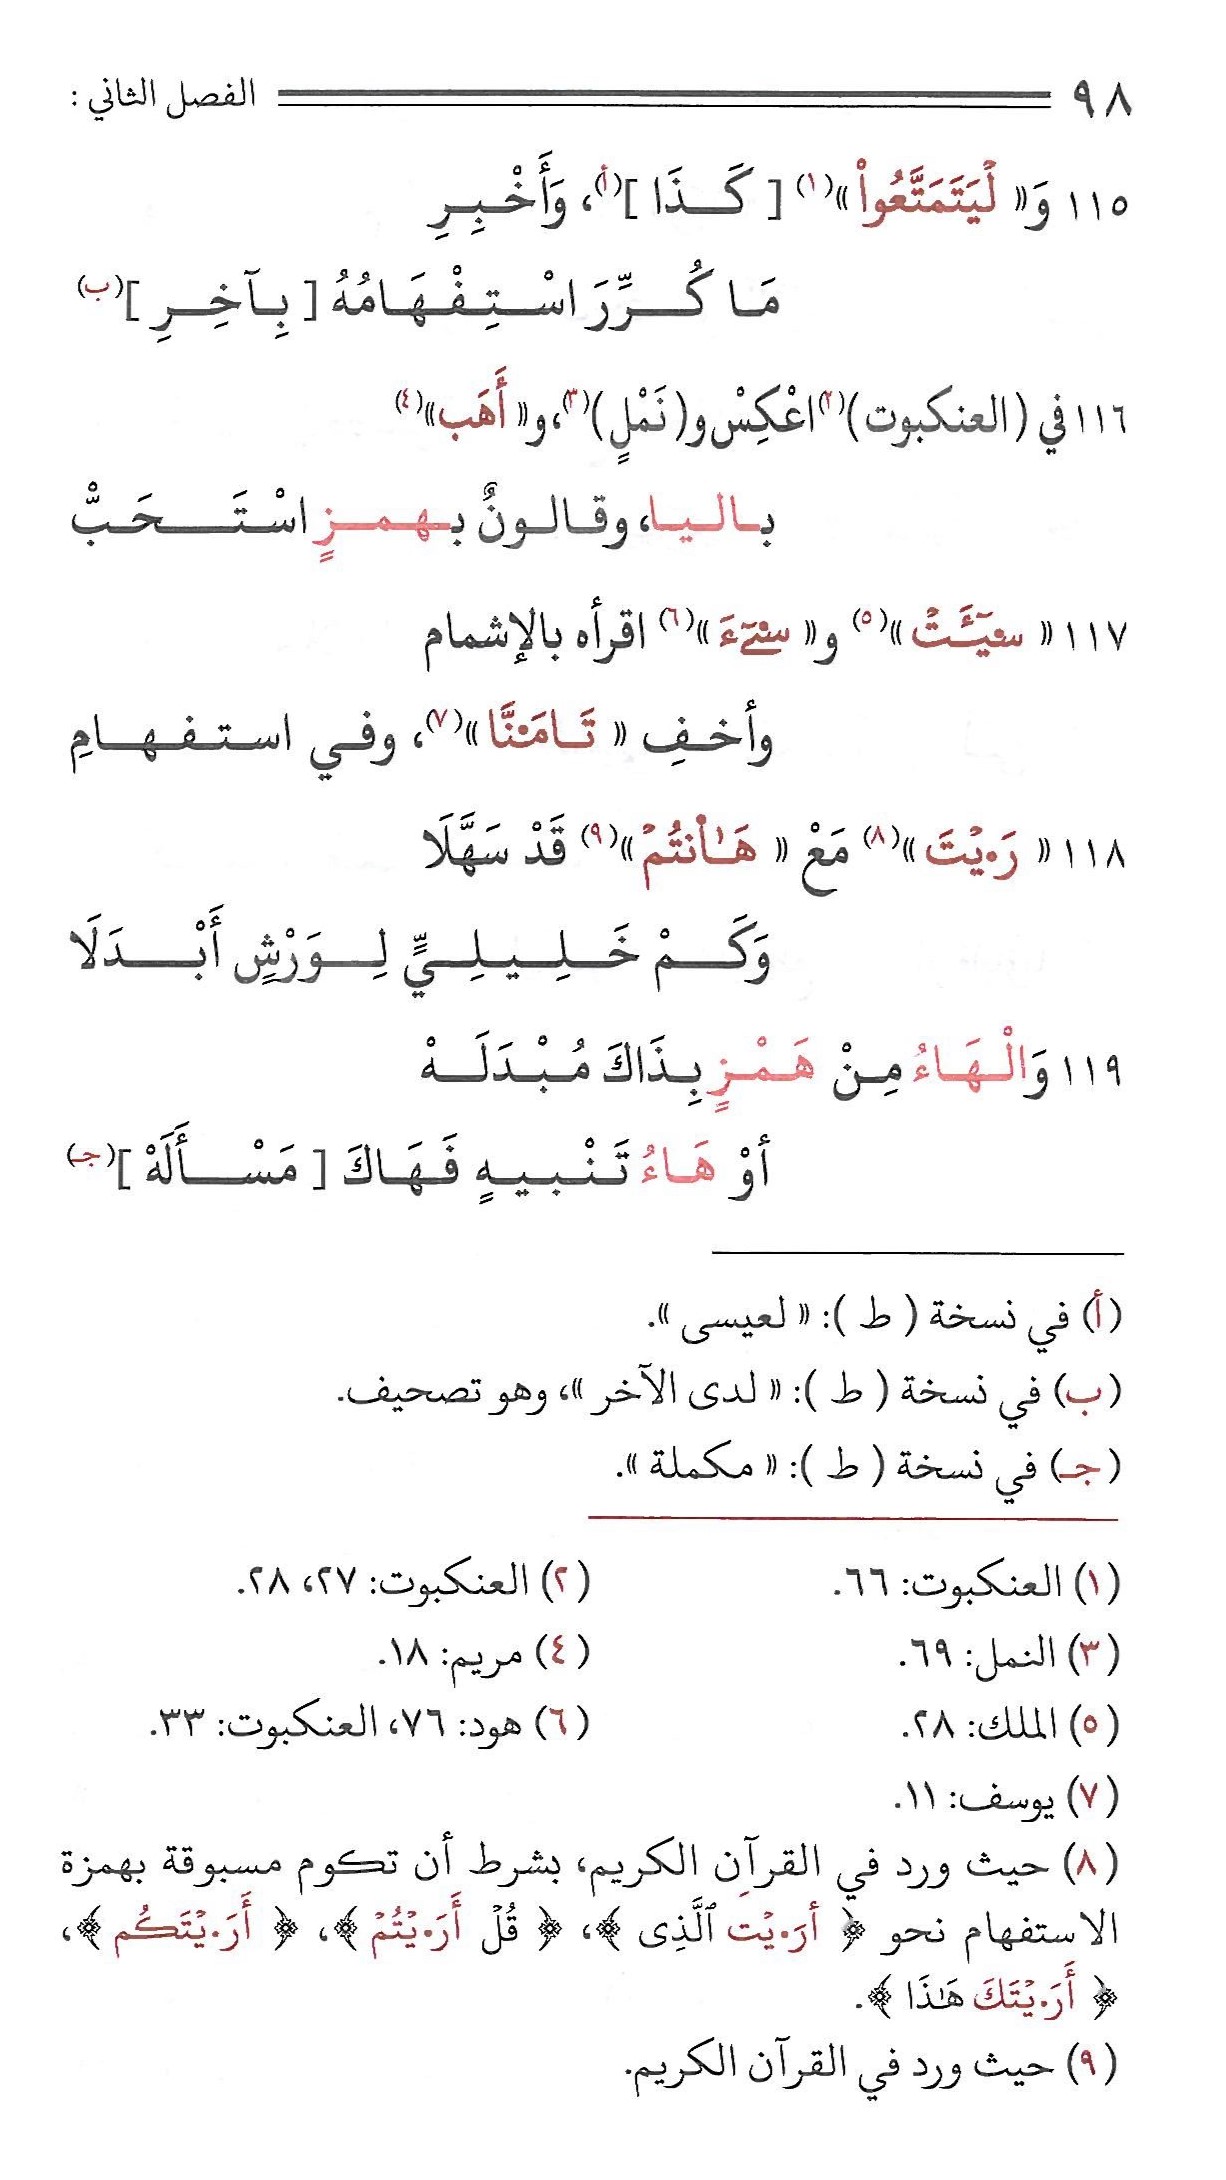 ٩٨ الفصل الثاني :
١١٥ وَ« لْيَتَمَتَّعُواْ »(١) [ كَذَا ](أ)، وَأَخْبِرِ
مَا كُرِّرَ اسْتِفْهَامُهُ [ بِآخِرِ ](ب)
١١٦ في (العنكبوت)(٢) اعْكِسْ و(نَمْلٍ)(٣)، و« أَهَب»(٤)
باليا، وقالونٌ بهمزٍ اسْتَحَبّْ
١١٧ « سيٓـَٔتْ »(٥) و« سيٓءَ »(٦) اقرأه بالإشمام
وأخفِ « تَامَ۬نَّا »(٧)، وفي استفهامِ
١١٨ « رَءيْتَ »(٨) مَعْ « هَٰأنتُمْ »(٩) قَدْ سَهَّلَا
وَكَمْ خَلِيلِيٍّ لِوَرْشٍ أَبْدَلَا
١١٩ وَالْهَاءُ مِنْ هَمْزٍ بِذَاكَ مُبْدَلَهْ
أوْ هَاءُ تَنْبيهٍ فَهَاكَ [ مَسْأَلَهْ ](جـ)
(أ) في نسخة ( ط ): « لعيسى ».
(ب) في نسخة ( ط ): « لدى الآخر »، وهو تصحيف.
(جـ) في نسخة ( ط ): « مكملة ».
(١) العنكبوت: ٦٦. (٢) العنكبوت: ٢٧، ٢٨.
(٣) النمل: ٦٩. (٤) مريم: ١٨.
(٥) الملك: ٢٨. (٦) هود: ٧٦، العنكبوت: ٣٣.
(٧) يوسف: ١١.
(٨) حيث ورد في القرآن الكريم، بشرط أن تكوم مسبوقة بهمزة
الاستفهام نحو ﴿ أرَ•يْت ٱلَّذِى ﴾، ﴿ قُلْ أَرَ•يْتُمْ ﴾، ﴿ أَرَ•يْتَكُم ﴾،
﴿ أَرَ•يْتَكَ هَٰذَا ﴾.
(٩) حيث ورد في القرآن الكريم.